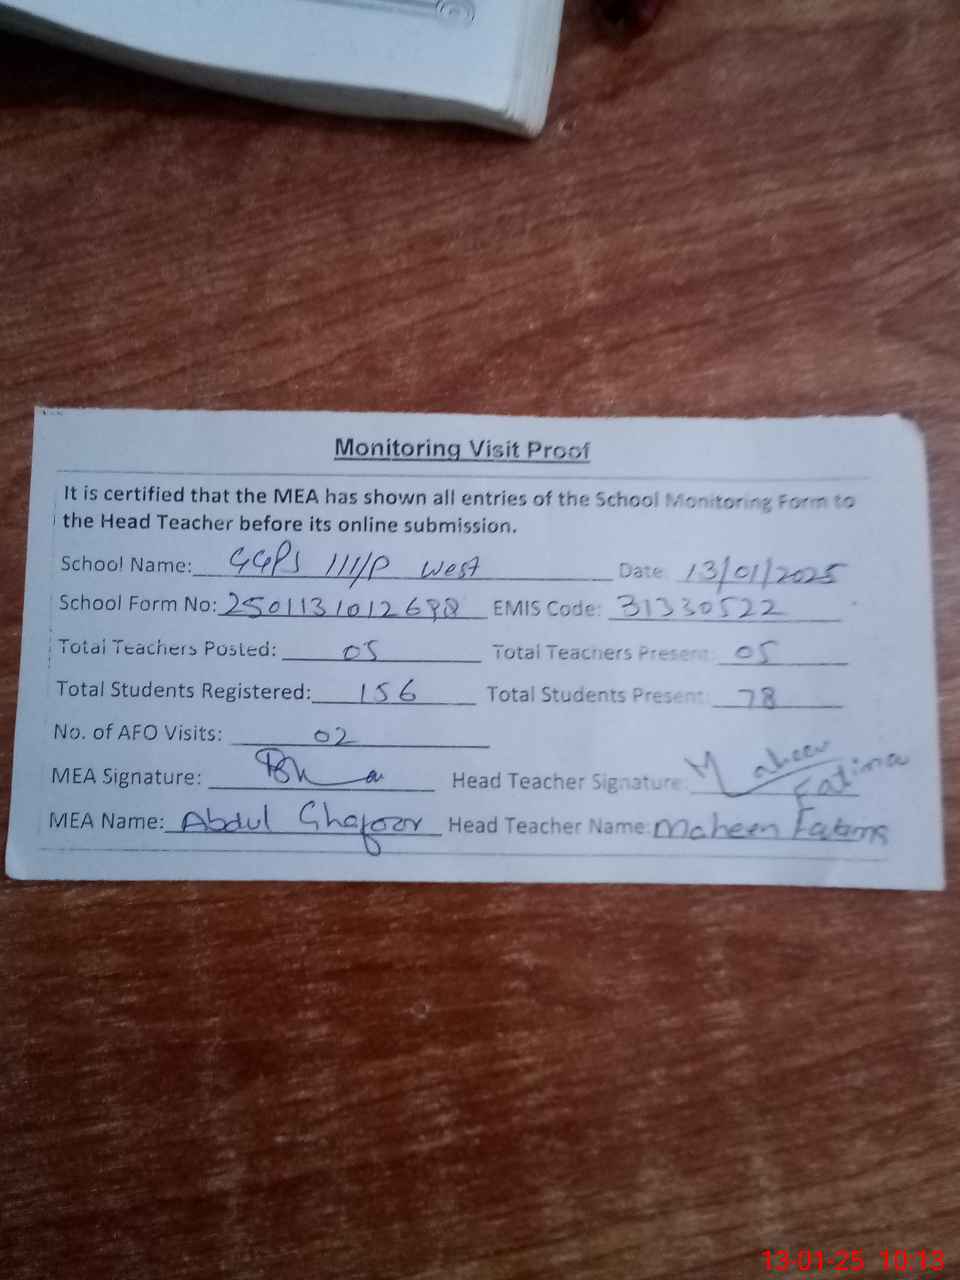 Monitoring Visit Proof
It is certified that the MEA has shown all entries of the School Monitoring Form to
the Head Teacher before its online submission.
School Name: GGPS 111/P West Date 13/01/2025
School Form No: EMIS Code: 31330522
Total Teachers Posted: 05 Total Teachers Present: 05
Total Students Registered: 156 Total Students Present: 78
No. of AFO Visits: 02
MEA Signature: Head Teacher Signature: Maheen Fatima
MEA Name: Abdul Ghafoor Head Teacher Name: Maheen Fatima
13-01-25 10:13